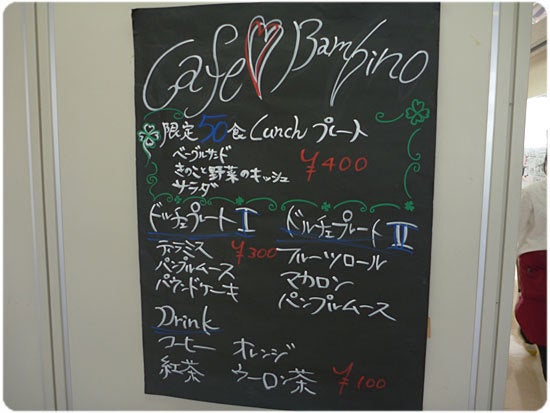 Cafe Bambino
限定50食 Lunch プレート
ベーグルサンド
きのこと野菜のキッシュ
サラダ
¥400
ドルチェプレート I
ティラミス
パンプルムース
パウンドケーキ
¥300
ドルチェプレート II
フルーツロール
マカロン
パンプルムース
Drink
コーヒー オレンジ
紅茶 ウーロン茶 ¥100